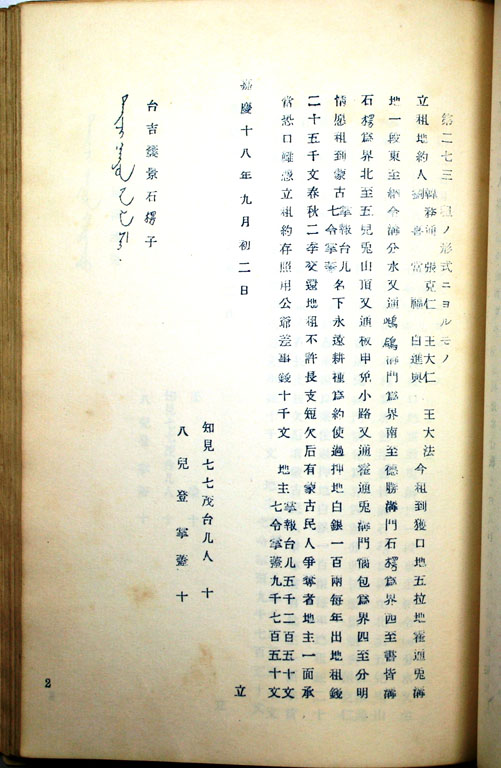 第二七三 ノ形式ニヨルモノ
立租地約人 張克仁 白進 王大仁 王大法今租到獲口地五拉地霍通兎溝
地一段東至 令溝分水又通 溝門為界南至徳勝溝門石楞為界四至書皆溝
石楞為界北至五兒兎山頂又通板申兎小路又通霍通兎溝門脳包為界四至分明
情愿租到蒙古 掌報台儿 七令掌蓋 名下永遠耕種為約使過押地白銀一百兩毎年出地租錢
二十五千文春秋二季交還地租不許長支短欠后有蒙古民人爭奪者地主一面承
當恐口難憑立租約存照用公爺差事錢十千文 地主 掌報台儿五千二百五十文 七令掌蓋九千七百五十文
立
嘉慶十八年九月初二日
知見七七茂台儿人 十
八兒登掌蓋 十
台吉 景石楞子
2